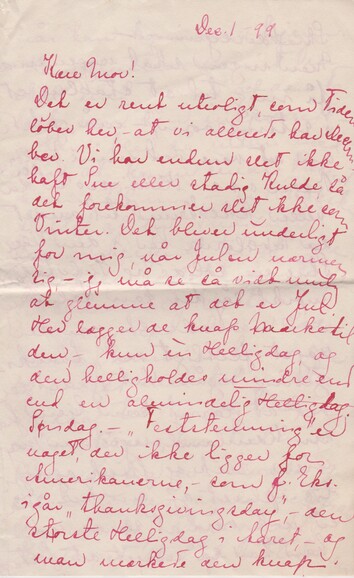 Dec. 1 99
Kære Mor!
Det er rent utroligt, som Tiden
løber her – at vi allerede har Decem
ber. Vi har endnu slet ikke
haft Sne eller stadig Kulde, så
det forekommer slet ikke som
Vinter. Det bliver underligt
for mig, når Julen nærmer
sig, – jeg må se så vidt muligt
at glemme at det er Jul.
Her lægger de knap Mærke til
den, – kun én Helligdag, og
den helligholdes mindre end
end en almindelig Helligdag
Søndag. – "Feststemning" er
noget, der ikke ligger for
Amerikanerne, – som f. Eks.
igår "thanksgivingsday", – den
største Helligdag i Året, – og
man mærkede den knap.